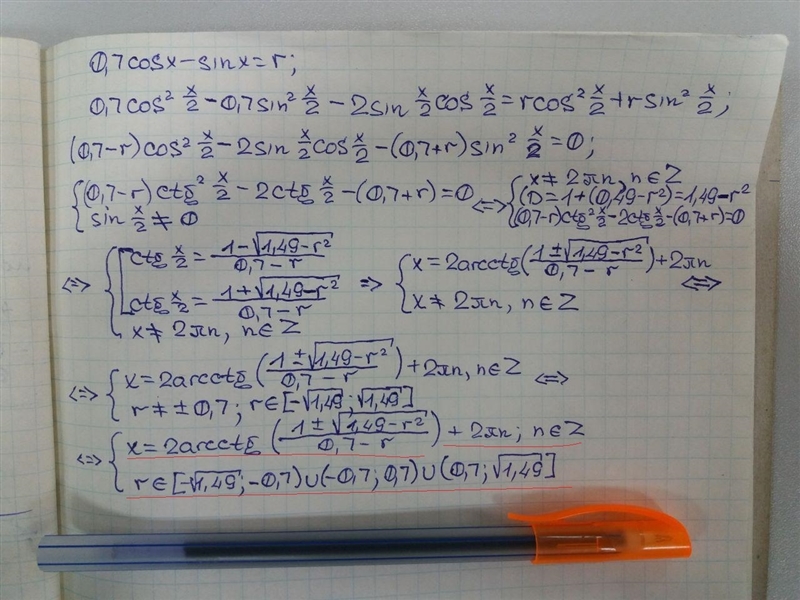 0,7cosx-sinx=r;
0,7cos² x/2 - 0,7sin² x/2 - 2sin x/2 cos x/2 = rcos² x/2 + rsin² x/2;
(0,7-r)cos² x/2 - 2sin x/2 cos x/2 - (0,7+r)sin² x/2 = 0;
{(0,7-r)ctg² x/2 - 2ctg x/2 - (0,7+r)=0
sin x/2 ≠ 0
<=> {x≠2πn, n∈Z
(D=1+(0,49-r²)=1,49-r²
(0,7-r)ctg² x/2 - 2ctg x/2 - (0,7+r)=0
<=> {[ctg x/2 = (1-√(1,49-r²))/(0,7-r)
ctg x/2 = (1+√(1,49-r²))/(0,7-r)
x≠2πn, n∈Z
=> {x=2arcctg((1±√(1,49-r²))/(0,7-r))+2πn
x≠2πn, n∈Z <=>
<=> {x=2arcctg((1±√(1,49-r²))/(0,7-r))+2πn, n∈Z <=>
r≠±0,7; r∈[-√1,49; √1,49]
<=> {x=2arcctg((1±√(1,49-r²))/(0,7-r))+2πn; n∈Z
r∈[-√1,49; -0,7)∪(-0,7; 0,7)∪(0,7; √1,49]